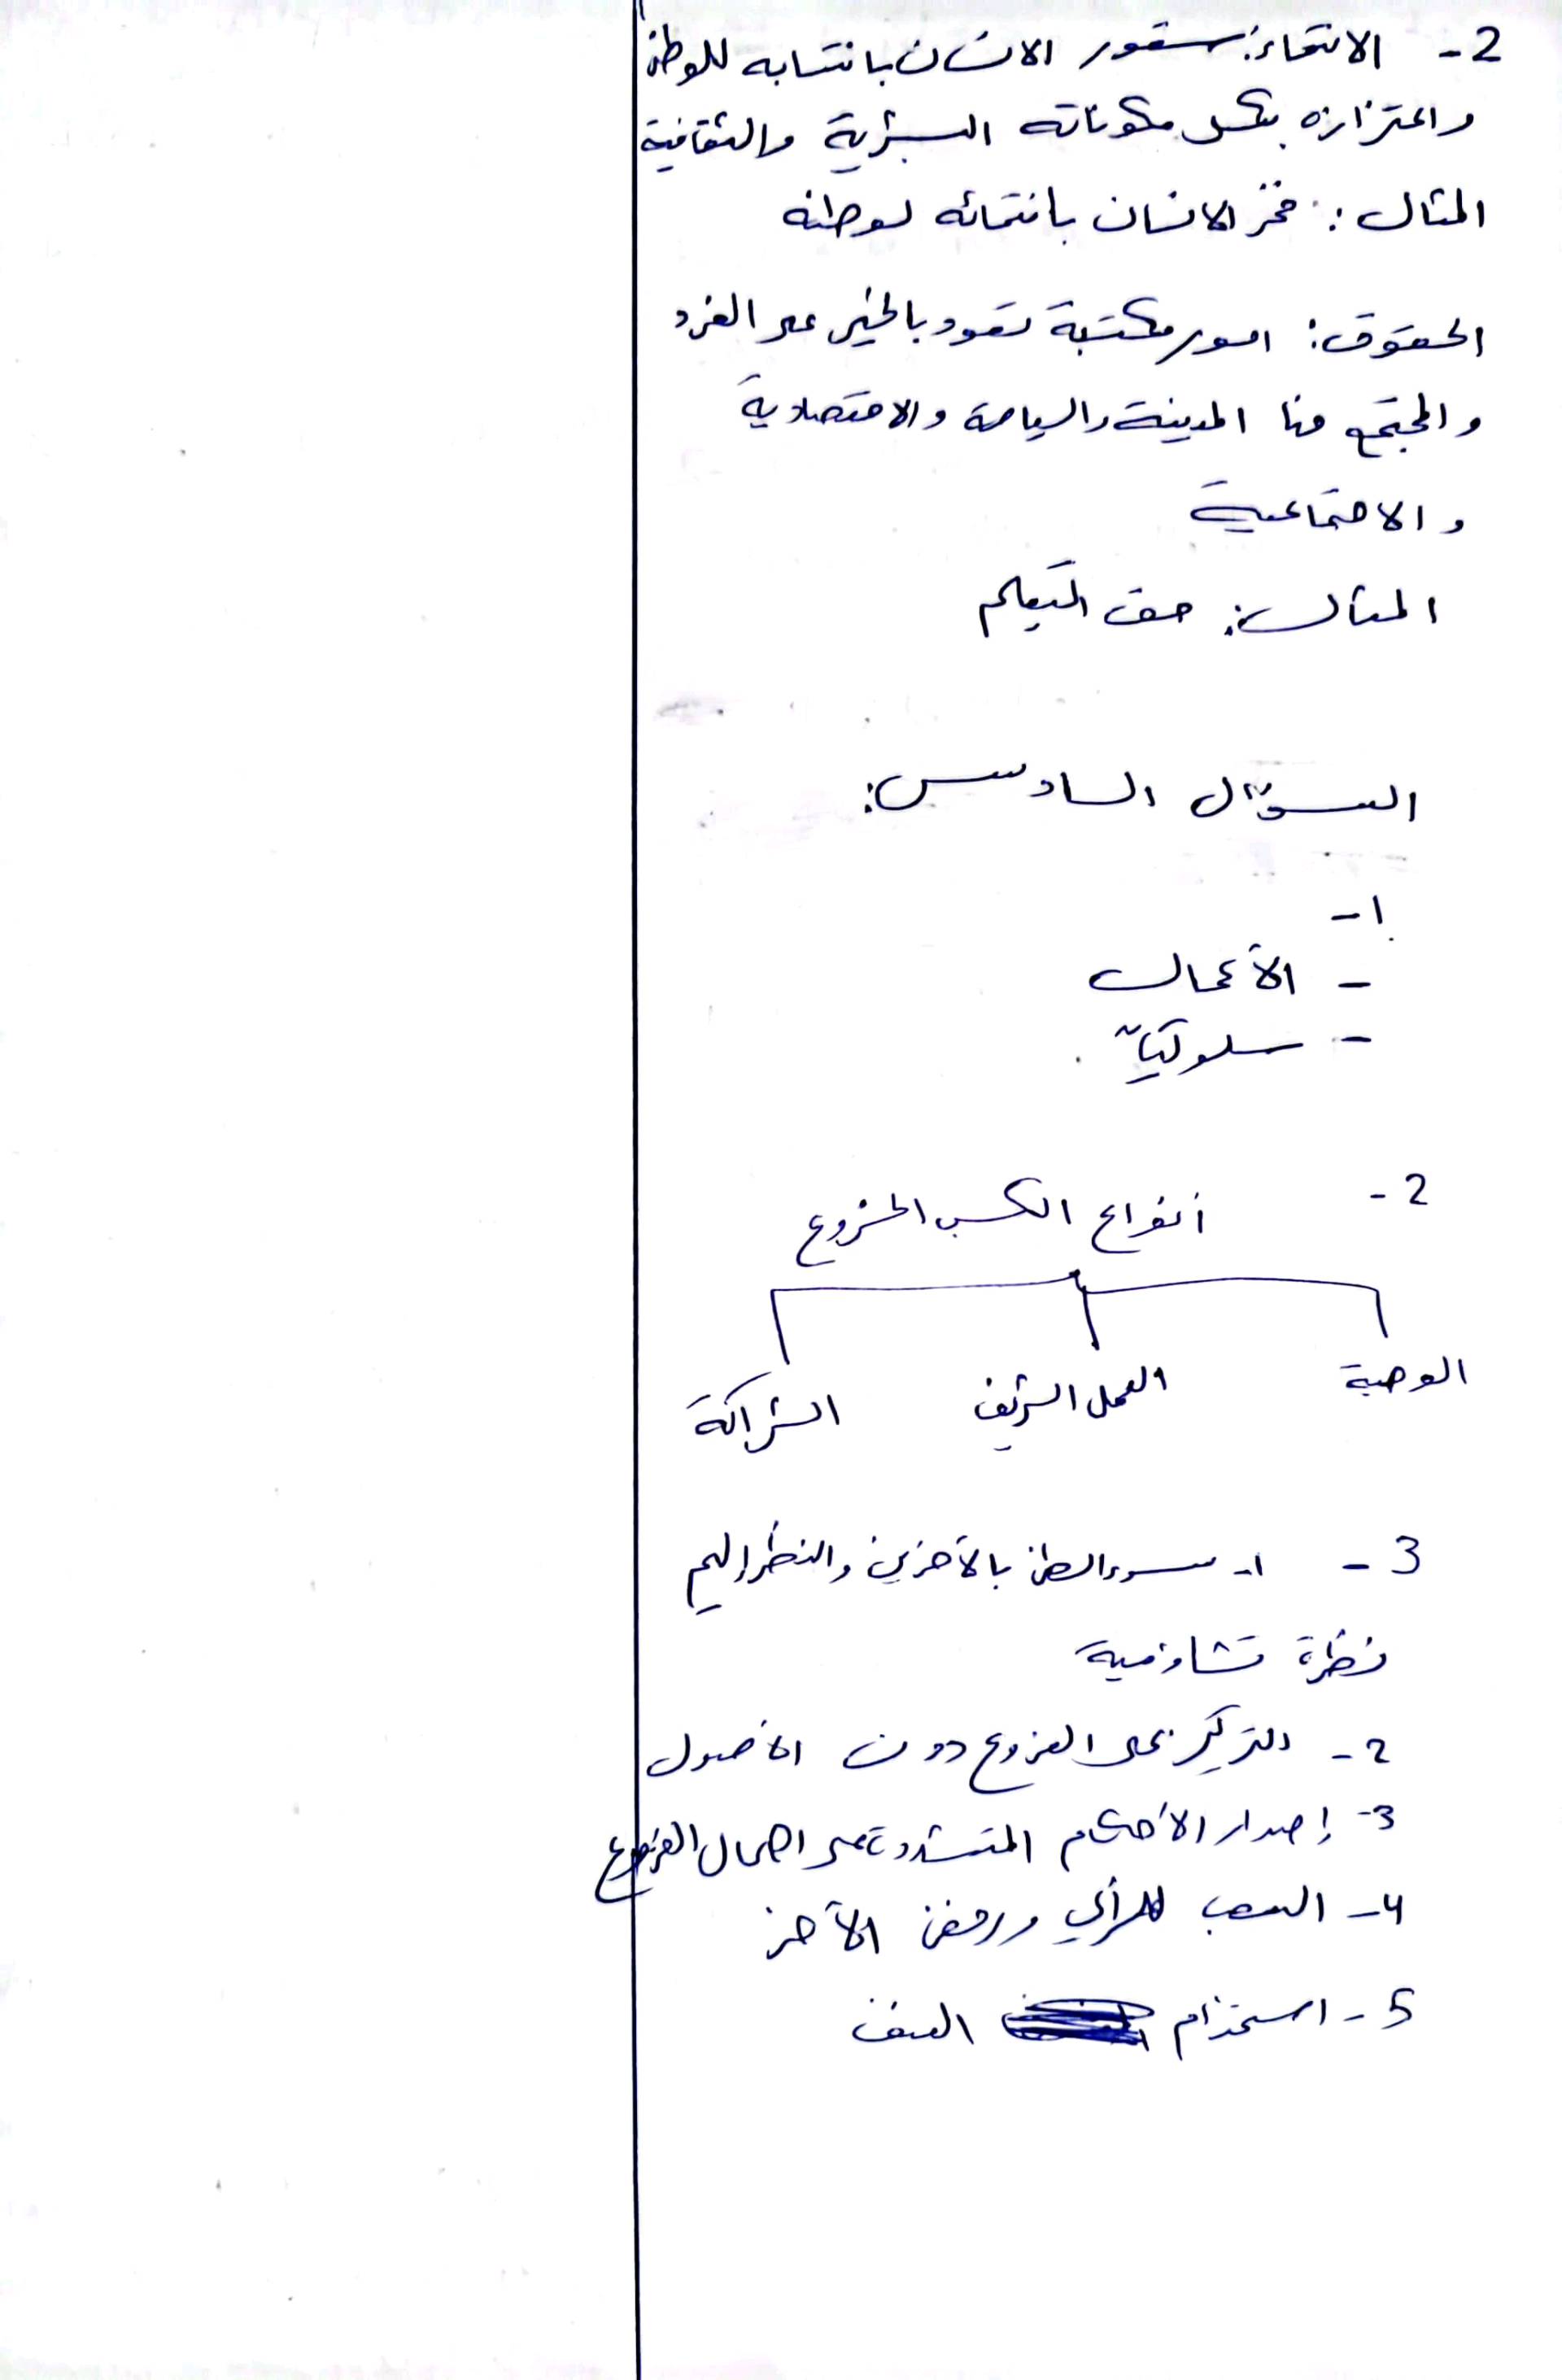 2- الانتماء: شعور الانسان بانتسابه للوطن
واعتزازه بكل مكوناته البشرية والثقافية
المثال: فخر الانسان بانتمائه لوطنه
الحقوق: امور مكتسبة تعود بالخير على الفرد
والمجتمع منها المدنية والسياسة والاقتصادية
والاجتماعية
المثال: حق التعليم
السؤال السادس:
1-
- الأعمال
- سلوكيات
2- أنواع الكسب المشروع
الوصية العمل الشريف الشراكة
3- 1- سوء الظن بالآخرين والنظر إليهم
نظرة تشاؤمية
2- التركيز على الفروع دون الأصول
3- إصدار الأحكام المتشددة على اهمال الفروع
4- التعصب للرأي ورفض الآخر
5- استخدام العنف